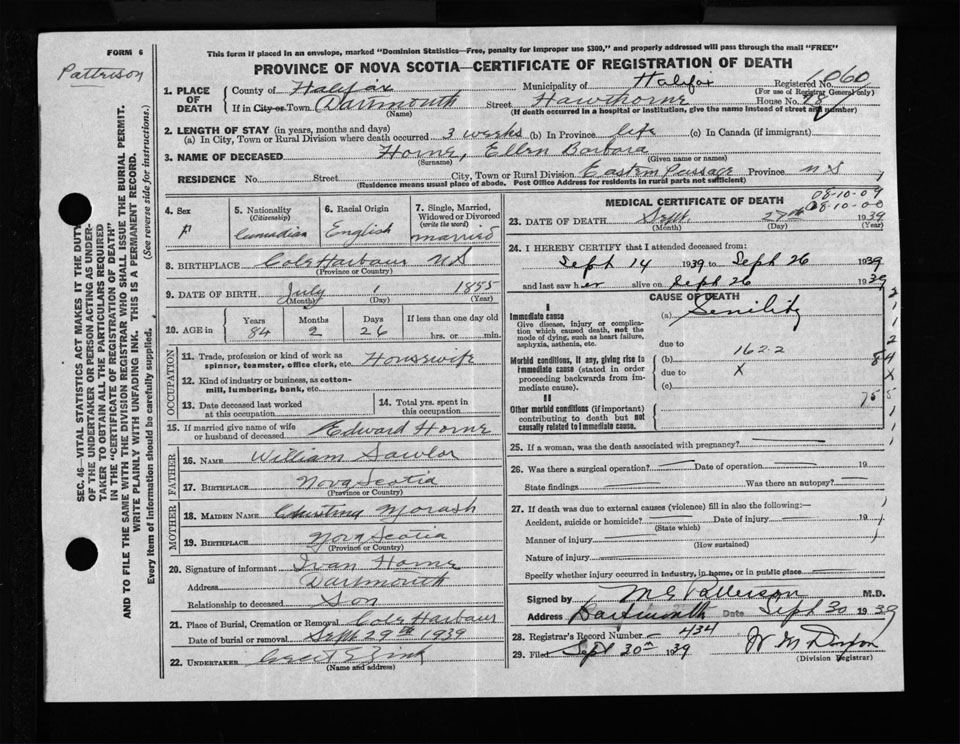 FORM 6
This form if placed in an envelope, marked "Dominion Statistics—Free, penalty for improper use $300," and properly addressed will pass through the mail "FREE"
Pattrison
PROVINCE OF NOVA SCOTIA—CERTIFICATE OF REGISTRATION OF DEATH
1. PLACE OF DEATH
County of Halifax Municipality of Halifax Registered No. 1060
(For use of Registrar General only)
If in City or Town Dartmouth Street Hawthorne House No. 28
(Name) (If death occurred in a hospital or institution, give the name instead of street and number)
2. LENGTH OF STAY (in years, months and days)
(a) In City, Town or Rural Division where death occurred 3 weeks (b) In Province life (c) In Canada (if immigrant)
3. NAME OF DECEASED Horne, Ellen Barbara
(Surname) (Given name or names)
RESIDENCE No. Street City, Town or Rural Division Eastern Passage Province N.S
(Residence means usual place of abode. Post Office Address for residents in rural parts not sufficient)
4. Sex F
5. Nationality (Citizenship) Canadian
6. Racial Origin English
7. Single, Married, Widowed or Divorced (write the word) married
8. BIRTHPLACE Cole Harbour N S
(Province or Country)
9. DATE OF BIRTH July 1 1855
(Month) (Day) (Year)
10. AGE in Years Months Days If less than one day old
84 2 26 hrs. or min.
OCCUPATION
11. Trade, profession or kind of work as spinner, teamster, office clerk, etc. Housewife
12. Kind of industry or business, as cotton-mill, lumbering, bank, etc.
13. Date deceased last worked at this occupation
14. Total yrs. spent in this occupation
15. If married give name of wife or husband of deceased Edward Horne
FATHER
16. NAME William Sawlor
17. BIRTHPLACE Nova Scotia
(Province or Country)
MOTHER
18. MAIDEN NAME Christina Morash
19. BIRTHPLACE Nova Scotia
(Province or Country)
20. Signature of informant Ivan Horne
Address Dartmouth
Relationship to deceased Son
21. Place of Burial, Cremation or Removal Cole Harbour
Date of burial or removal Sept 29th 1939
22. UNDERTAKER Zink
(Name and address)
MEDICAL CERTIFICATE OF DEATH
08-10-09
08-10-00
23. DATE OF DEATH Sept. 27th 1939
(Month) (Day) (Year)
24. I HEREBY CERTIFY that I attended deceased from:
Sept 14 1939 to Sept 26 1939
and last saw her alive on Sept 26 1939
CAUSE OF DEATH
I
Immediate cause (a) Senility
Give disease, injury or complication which caused death, not the mode of dying, such as heart failure, asphyxia, asthenia, etc.
due to
Morbid conditions, if any, giving rise to immediate cause (stated in order proceeding backwards from immediate cause).
(b) 162.2
due to X
(c)
II
Other morbid conditions (if important) contributing to death but not causally related to immediate cause.
25. If a woman, was the death associated with pregnancy?
26. Was there a surgical operation? Date of operation 19
State findings Was there an autopsy?
27. If death was due to external causes (violence) fill in also the following:—
Accident, suicide or homicide? Date of injury 19
(State which)
Manner of injury
(How sustained)
Nature of injury
Specify whether injury occurred in industry, in home, or in public place
Signed by M G Patterson M.D.
Address Dartmouth Date Sept 30 1939
28. Registrar's Record Number 434
29. Filed Sept 30th 1939
(Division Registrar)
SEC. 46—VITAL STATISTICS ACT MAKES IT THE DUTY OF THE UNDERTAKER OR PERSON ACTING AS UNDERTAKER TO OBTAIN ALL THE PARTICULARS REQUIRED IN THE "CERTIFICATE OF REGISTRATION OF DEATH" AND TO FILE THE SAME WITH THE DIVISION REGISTRAR WHO SHALL ISSUE THE BURIAL PERMIT.
WRITE PLAINLY WITH UNFADING INK. THIS IS A PERMANENT RECORD.
Every item of information should be carefully supplied. (See reverse side for instructions.)